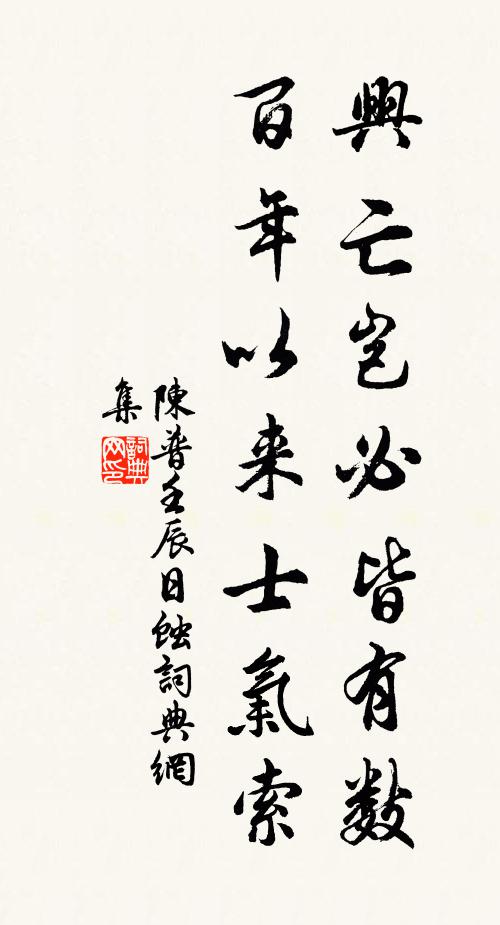 興亡豈必皆有数
百年以来士氣索
陳普壬辰日蝕詞典網
集
詞典
网印